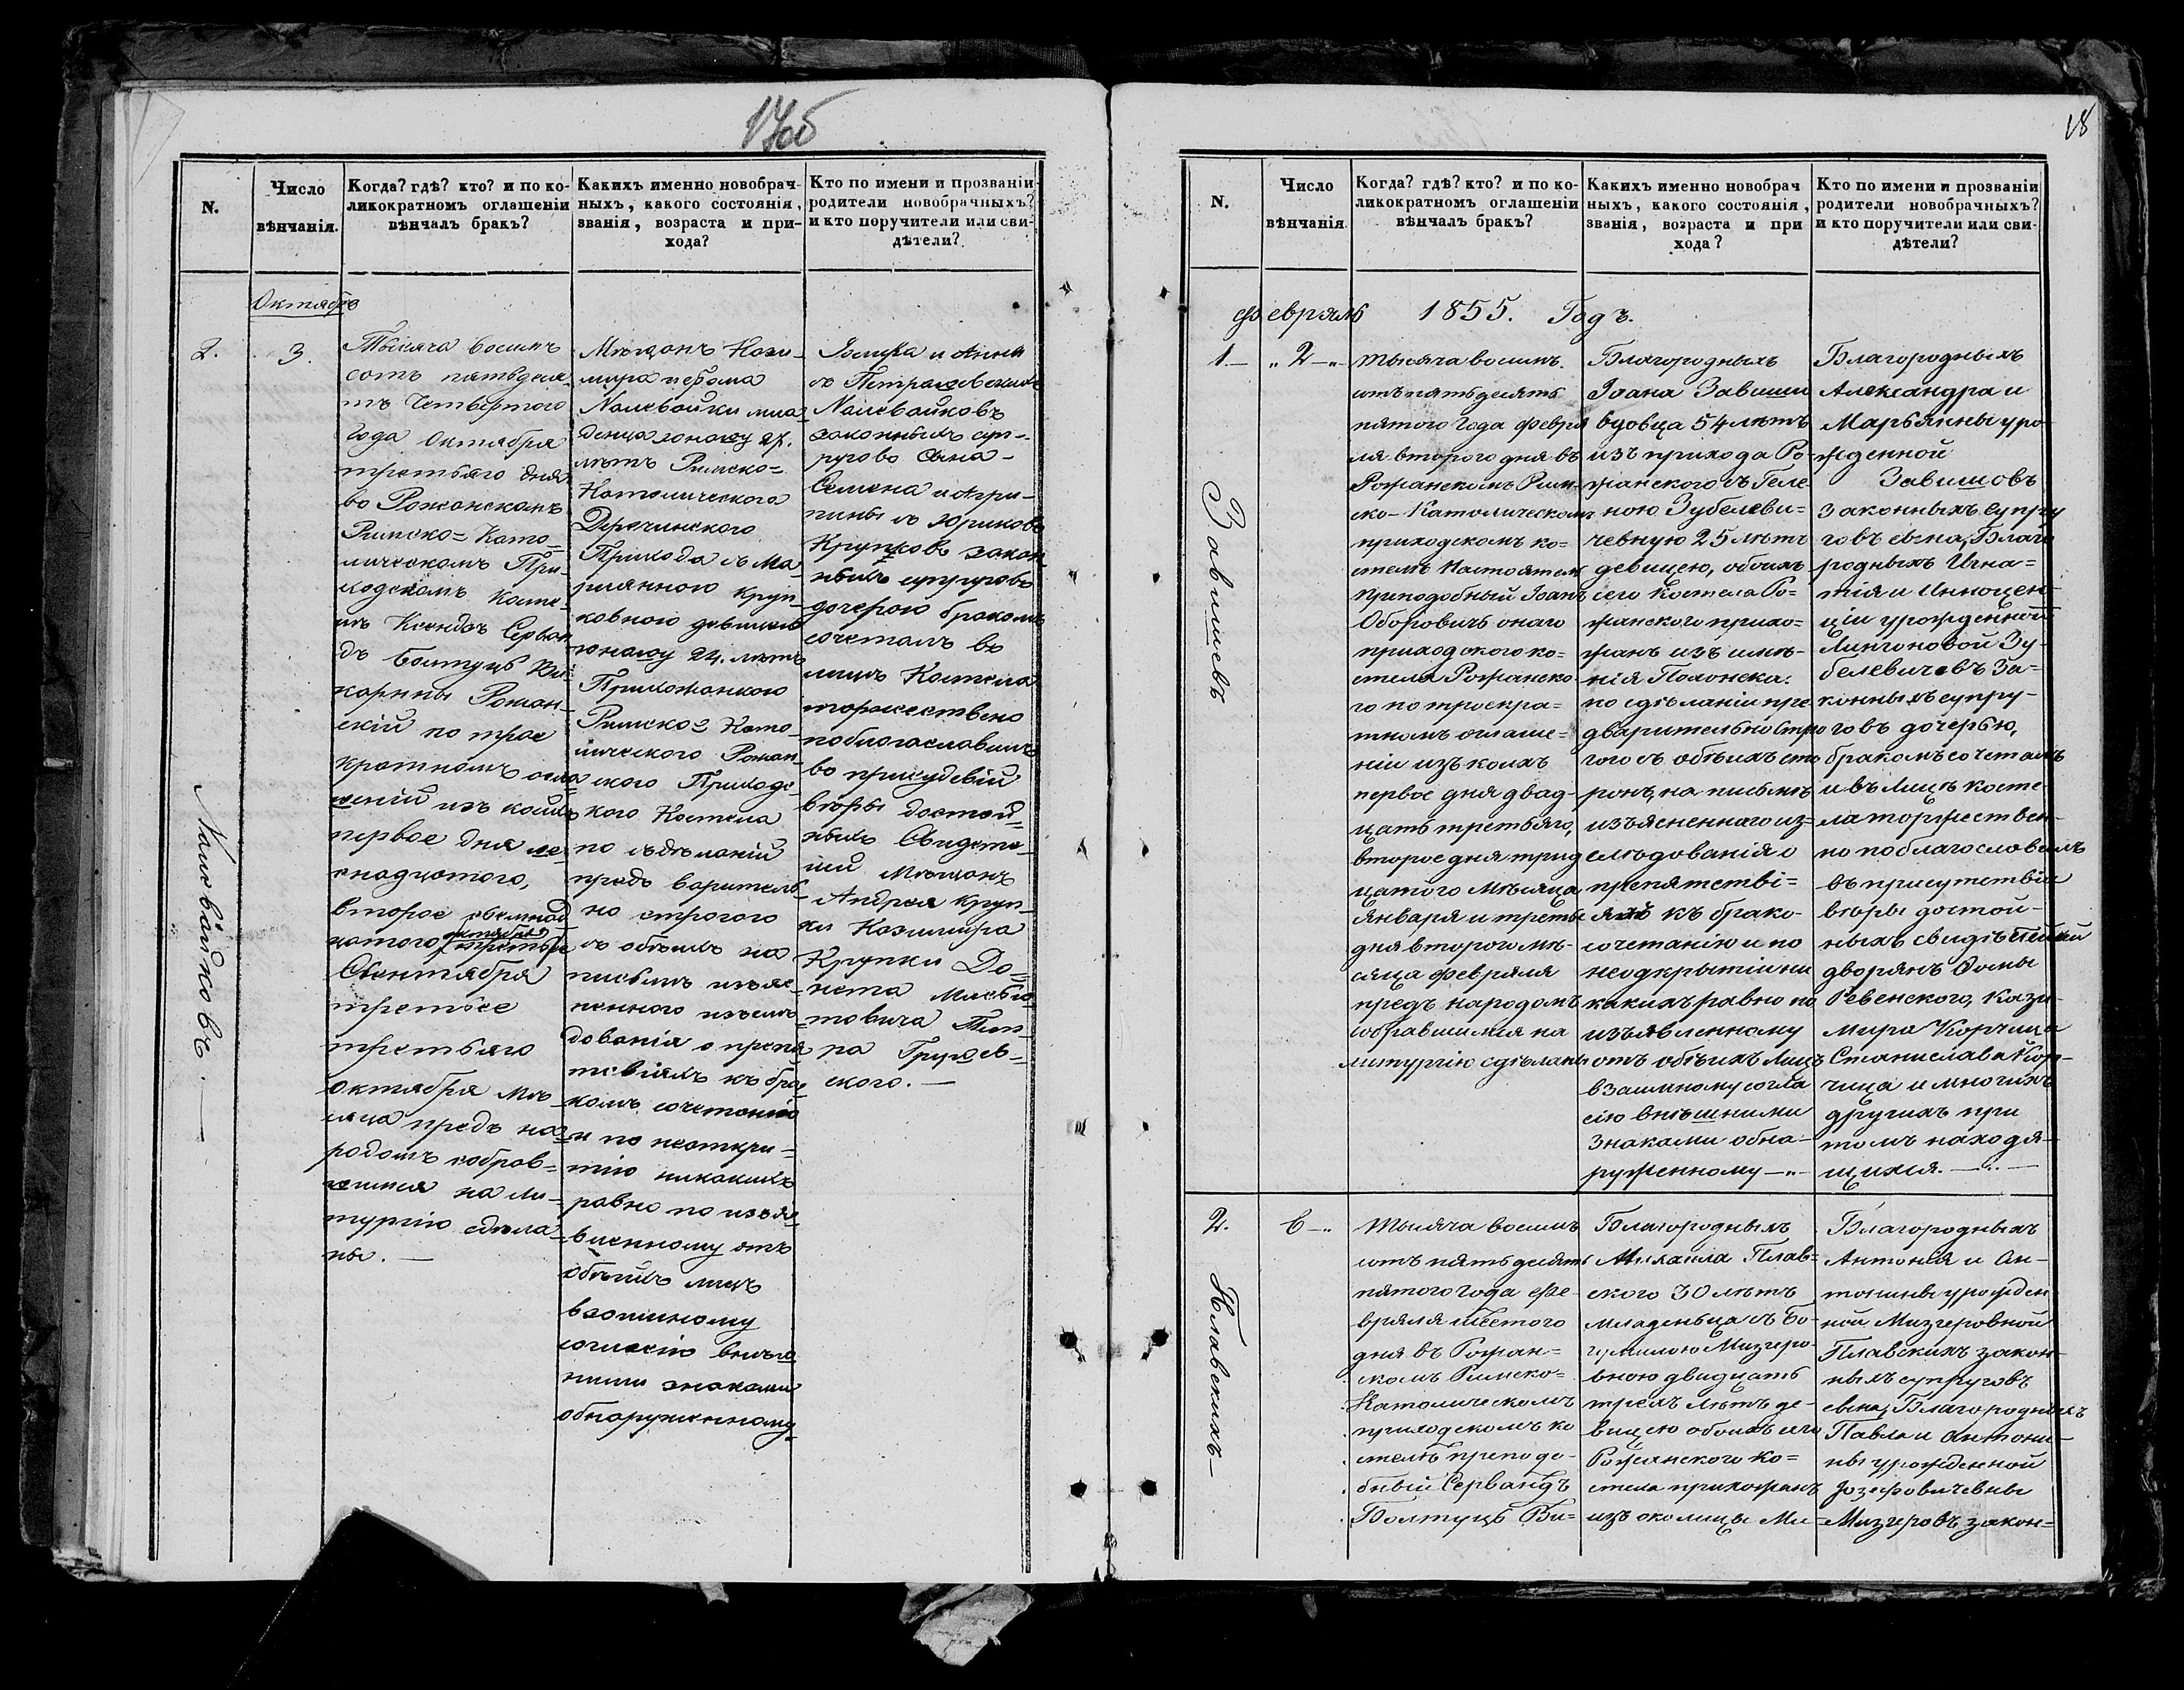 17об
N.
Число
вѣнчанія.
Когда? гдѣ? кто? и по ко-
ликократномъ оглашеніи
вѣнчалъ бракъ?
Какихъ именно новобрач-
ныхъ, какого состоянія,
званія, возраста и при-
хода?
Кто по имени и прозванію
родители новобрачныхъ?
и кто поручители или сви-
дѣтели?
Октябрь
2.
3.
Налевайковъ.
Тысяча восемь
сотъ пятьдеся
тъ Четвертого
года Октября
третьяго дня
во Рожанскомъ
Римско=Като=
лическомъ При-
ходскомъ Косте-
лѣ Ксендзъ Серван
дъ Болтуць Ви-
карный Рожан-
скій по трое
кратномъ огла
шеній изъ коихъ
первое дня
надцатого,
второе
цатого
Сентября
третьее
третьяго
октября мѣ
сяца предъ на
родомъ собрав=
шимся на ли-
тургію сдѣла
ны. —
Мѣщанъ Кази-
мира
Налевайки мла
денца юношу 27.
лѣтъ Римско=
Католического
Деречинского
Прихода съ Ма
ріянною Круп
ковною девицею
юношу 24. лѣтъ
Прихожанкою
Римско= Като
лического Рожан
ского Приходс-
кого Костела
по съдѣланій
предъ варитель
но строгого
съ обѣихъ на
письмѣ изъяс
ненного изслѣ
дованія о препя
тсвіяхъ къ бра
комъ сочетанію
и по неоткры-
тію никакихъ
равно по изъяв
вленному отъ
обѣихъ лицъ
взаимному
согласію внѣш
ними знаками
обнаруженному
Іосифа и Анны
съ Петрашевскихъ
Налевайковъ
законныхъ суп-
руговъ сына-
Семена и Агри-
пины съ Юриковъ
Крупковъ закон
ныхъ супруговъ
дочерою бракомъ
сочеталъ въ
лицѣ Костела
торжествено
поблагославилъ
во присудсвіи
вѣры достой=
ныхъ Свидете-
лей Мѣщанъ
Андрея Круп
ки Казимира
Крупки До=
ната
товича Пет
ра
ского. —
18
N.
Число
вѣнчанія.
Когда? гдѣ? кто? и по ко-
ликократномъ оглашеніи
вѣнчалъ бракъ?
Какихъ именно новобрач
ныхъ, какого состоянія,
званія, возраста и при
хода?
Кто по имени и прозванію
родители новобрачныхъ?
и кто поручители или сви-
дѣтели?
февраль 1855. Годъ.
1.—
„2—„
Завишевъ
тысяча восемь.
сотъ пятьдесятъ
пятого Года февра
ля второго дня въ
Рожанскомъ Рим-
ско-Католическомъ
приходскомъ ко=
стелѣ Настоятель
Преподобный Іоанъ
Оборовичъ онаго
приходского ко=
стела Рожанско-
го по троекра=
тномъ оглаше=
ніи изъ коихъ
первое дня двад-
цать третьяго,
второе дня трид
цатого мѣсяца
Января и третье
дня второго мѣ-
сяца февраля
предъ народомъ
собравшимся на
литургію сдѣланы
Благородныхъ
Іоана Завиши
вдовца 54 лѣтъ
изъ прихода Ро-
жанского съ Геле
ною Зубелеви=
чевную 25 лѣтъ
девицею, обоихъ
сего Костела Ро=
жанского прихо=
жанъ изъ имѣ-
нія Полонска.
по сдѣланіи пре
дварительно стро
гого съ обѣихъ сто
ронъ, на письмѣ
изъясненнаго из=
слѣдованія о
препятстві=
яхъ къ брако-
сочетанію и по
неодкрытіи ни
какихъ равно по
изъявленному
отъ обѣихъ лицъ
взаимному согла
сію внѣшними
знаками обна-
руженному—„-
Благородныхъ
Александра и
Марьянны уро
жденной
Завишовъ
Законныхъ супру
говъ сына, Благо
родныхъ Игна=
тія и Инноцен-
ціи урожденной
Лингоновой Зу-
белевичевъ За-
конныхъ супру-
говъ дочерью,
бракомъ сочеталъ
и въ Лицѣ косте-
ла торжествен-
но поблагословилъ
въ присутствіи
вѣры достой-
ныхъ свидѣтелей
дворянъ Фомы
Ревенского, Кази-
мира Корчица
Станислава Кор-
чица и многихъ
другихъ при
томъ находя-
щихся.—„—
2.
6—„
Плавскихъ—
Тысяча восемь
сотъ пятьдесятъ
пятого года фе-
враля шестого
дня въ Рожан=
скомъ Римско=
Католическомъ
приходскомъ ко
стелѣ преподо-
бный Сервандъ
Болтуць Ви=
Благородныхъ
Михаила Плав=
ского 30 лѣтъ
младеньца съ Бо-
гумилою Мизгеро-
вною двадцать
трехъ лѣтъ де-
вицею обоихъ сего
Рожанского Ко=
стела прихожанъ
изъ околицы Ми
Благородныхъ
Антонія и Ан-
тонины урожден
ной Мизгеровной
Плавскихъ закон-
ныхъ супруговъ
сына, Благородныхъ
Павла и Антони-
ны урожденной
Іозефовичевны
Мизгеровъ закон=